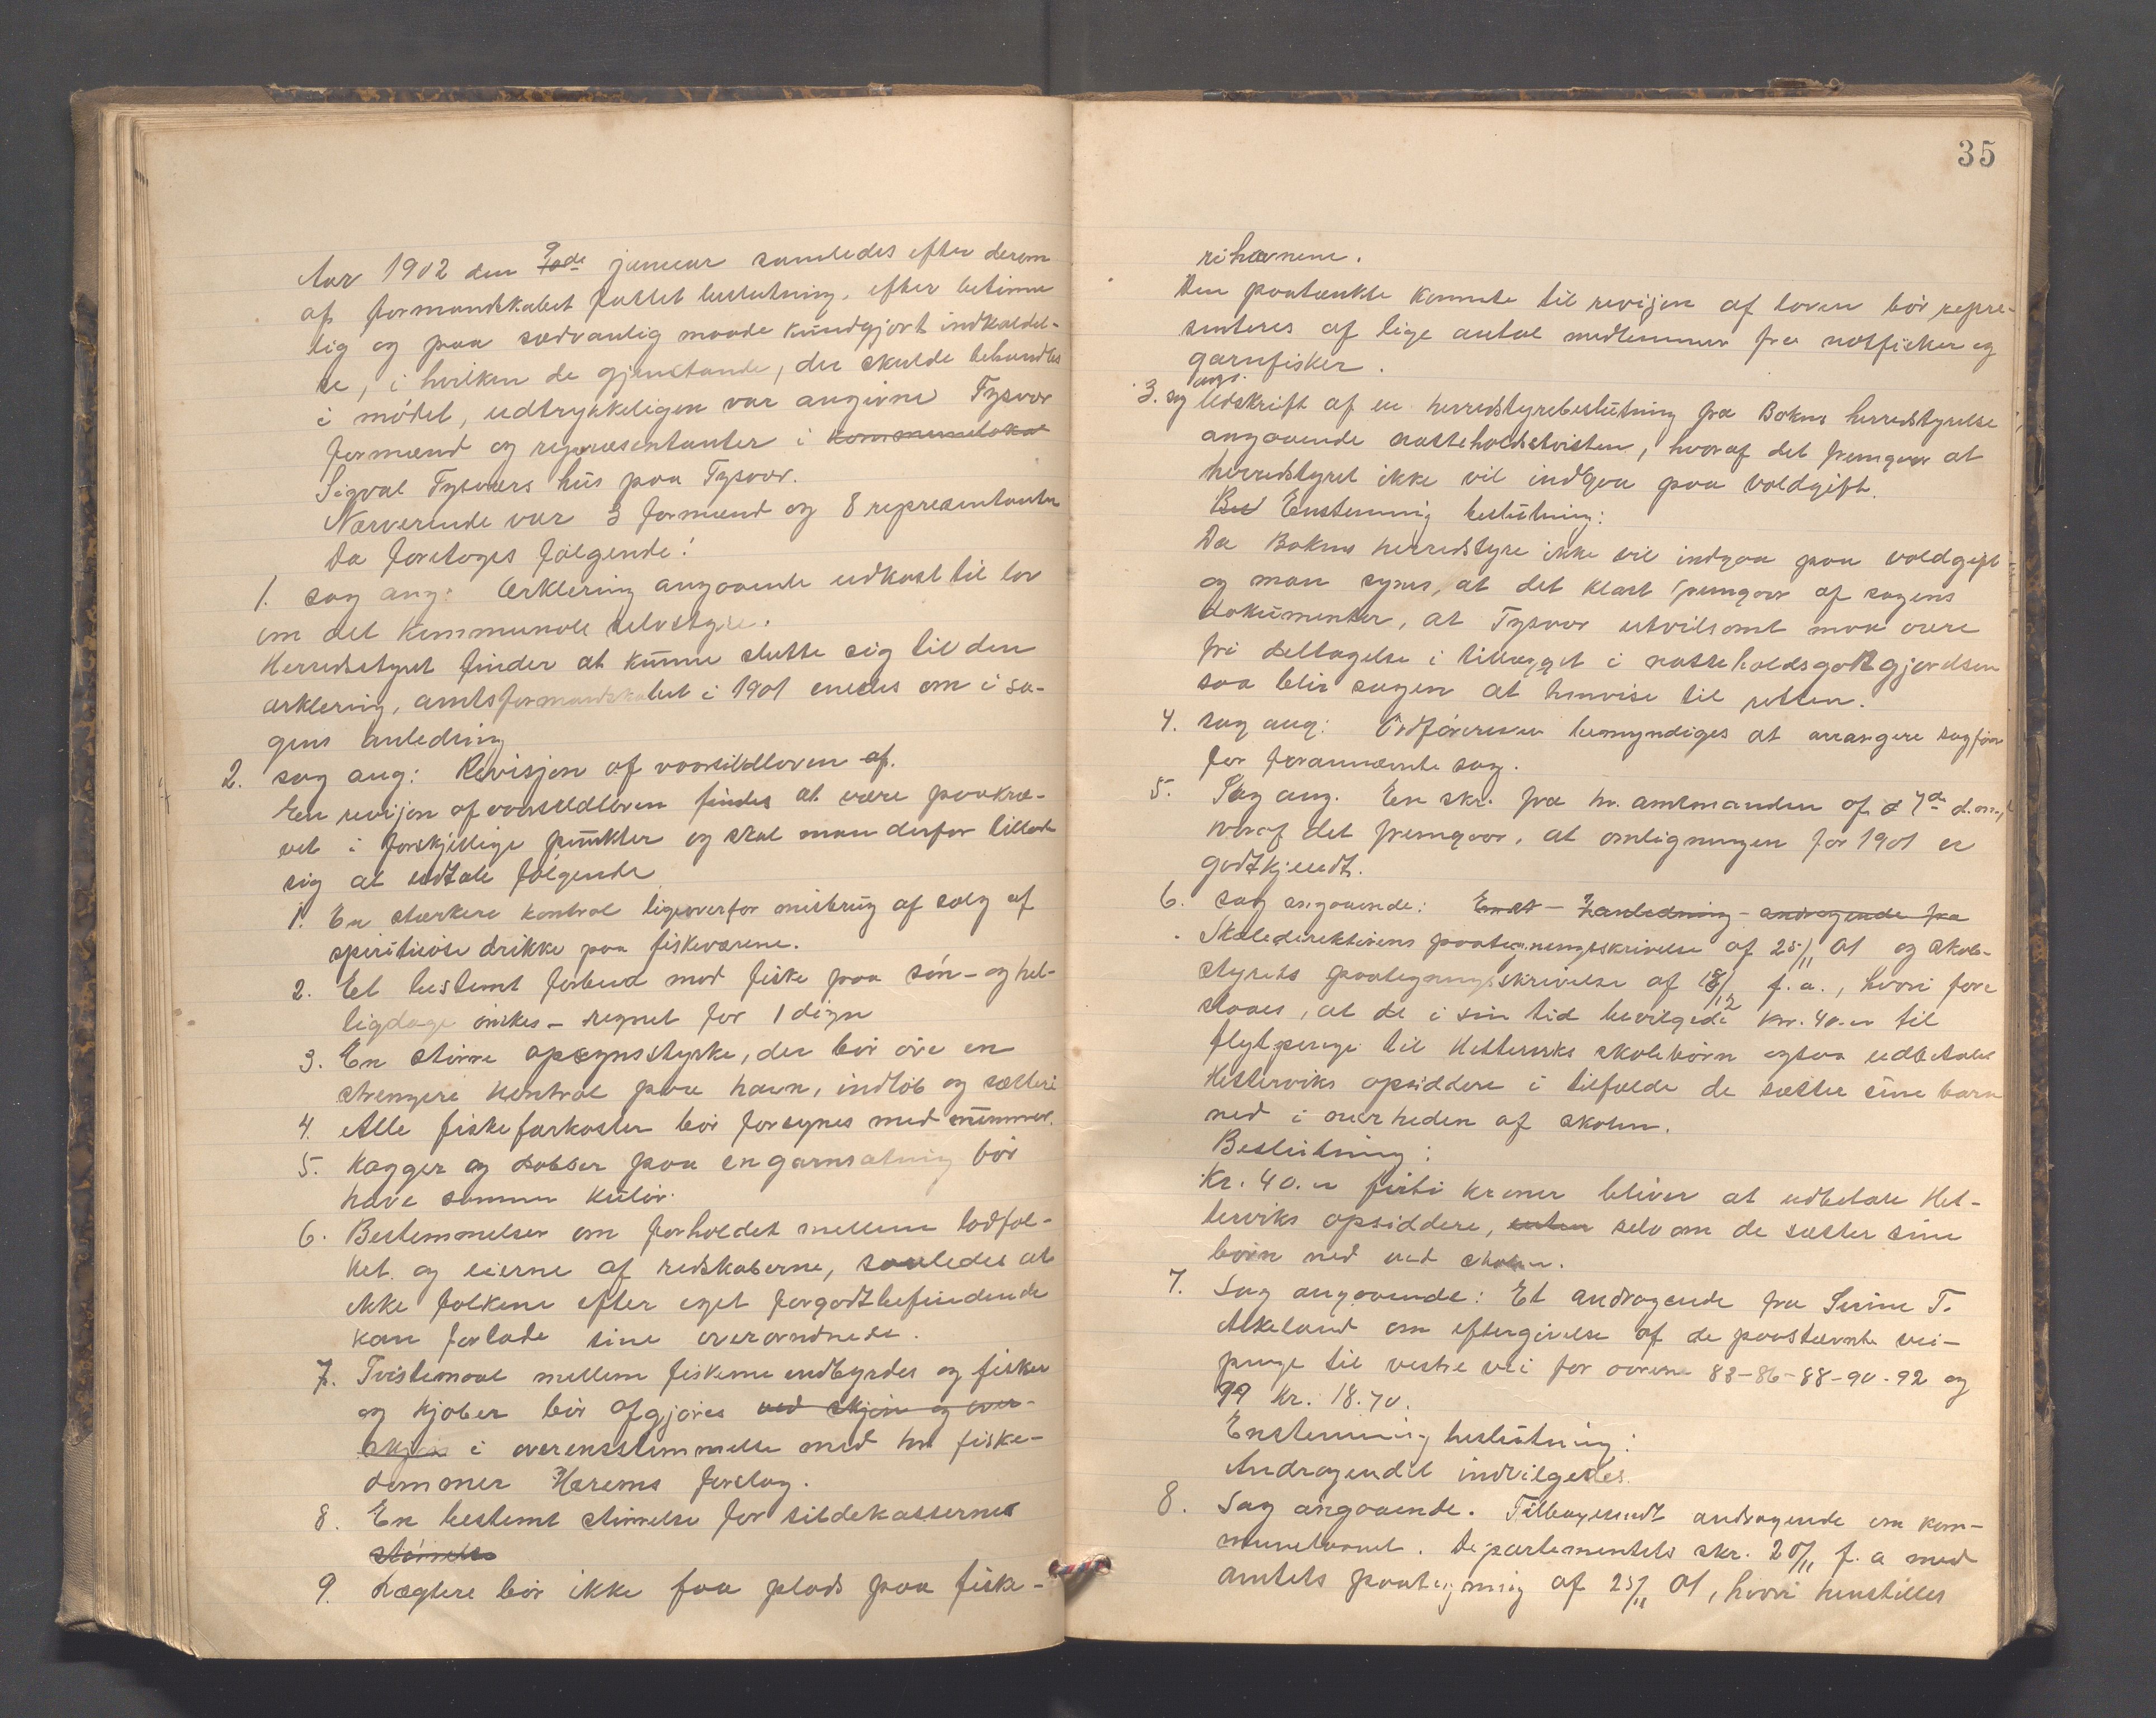 Aar 1902 den 9de januar samledes efter derom
af formandskabet fattet beslutning, efter betime
lig og paa sædvanlig maade kundgjort indkaldel-
se, i hvilken de gjenstande, der skulde behandles
i mødet, udtrykkeligen var angivne Tysvær
formænd og repræsentanter i kommunelokal
Sigval Tysværs hus paa Tysvær.
Nærverende var 3 formænd og 8 representanter
Da foretoges følgende:
1. sag ang: Erklering angaaende udkast til lov
om det kommunale selvstyre.
Herredsstyret finder at kunne slutte sig til den
erklering, amtsformandskabet i 1901 enedes om i sa-
gens anledning
2. sag ang: Revisjon af vaarsildloven af.
En revisjon af vaarsildloven findes at være paakræ-
vet i forskjellige punkter og skal man derfor tillade
sig at udtale følgende
1. En stærkere kontrol ligeoverfor misbrug af salg af
spirituøse drikke paa fiskeværene.
2. Et bestemt forbud mod fiske paa søn- og hel-
ligdage ønskes - regnet for 1 døgn
3. En større opsynsstyrke, der bør øve en
strengere kontrol paa havn, indløb og sætteri
4. Alle fiskefarkoster bør forsynes med nummer.
5. Kagger og dobber paa en garnsætning bør
have samme kulør.
6. Bestemmelser om forholdet mellem lodfol-
ket og eierne af redskaberne, saaledes at
ikke folkene efter eget forgodtbefindende
kan forlade sine overordnede.
7. Tvistemaal mellem fiskerne indbyrdes og fisker
og kjøber bør afgjøres ved skjøn og over-
skjøn i overensstemmelse med hr. fiske-
dommer Hærems forslag.
8. En bestemt størrelse for sildekasserne
størrelse
9. Lægtere bør ikke faa plads paa fiske-
35
rihavnene.
Den paatænkte komite til revisjon af loven bør repre-
senteres af lige antal medlemmer fra notfisker og
garnfisker.
3. sag ang. Udskrift af en herredstyrebeslutning fra Bokns herredstyrelse
angaaende rasteholdstvisten, hvoraf det fremgaar at
herredstyret ikke vil indgaa paa voldgift.
Bes Enstemmig beslutning:
Da Bokns herredstyre ikke vil indgaa paa voldgift
og man synes, at det klart fremgaar af sagens
dokumenter, at Tysvær utvilsomt maa være
fri deltagelse i tillægget i rasteholdsgodtgjørelsen
saa blir sagen at henvise til retten.
4. sag ang: Ordføreren bemyndiges at arrangere sagfører
for forannævnte sag.
5. Sag ang. En skr. fra hr. amtmanden af d 7de d.m.,
hvoraf det fremgaar, at omligningen for 1901 er
godtkjendt.
6. sag angaaende: I anledning - andragende fra
Skoledirektørens paategningsskrivelse af 25/11 01 og skole-
styrets paategningsskrivelse af 18/12 f.a., hvori fore
slaaes, at de i sin tid bevilgede kr. 40.00 til
flytpenge til Hetlerviks skolebørn ogsaa udbetales
Hetlerviks opsiddere i tilfælde de sætter sine børn
ned i nærheden af skolen.
Beslutning:
Kr. 40.00 firti kroner bliver at udbetale Het-
lerviks opsiddere, enten selv om de sætter sine
børn ned ved skolen.
7. Sag angaaende: Et andragende fra Serine T.
Akeland om eftergivelse af de paastævnte vei-
penge til vestre vei for aarene 83-86-88-90-92 og
99 kr. 18.70.
Enstemmig beslutning:
Andragendet indvilgedes.
8. Sag angaaende. Tilbagesendt andragende om kom-
munelaanet. Departementets skr. 20/11 f.a med
amtets paategning af 25/11 01, hvori henstilles